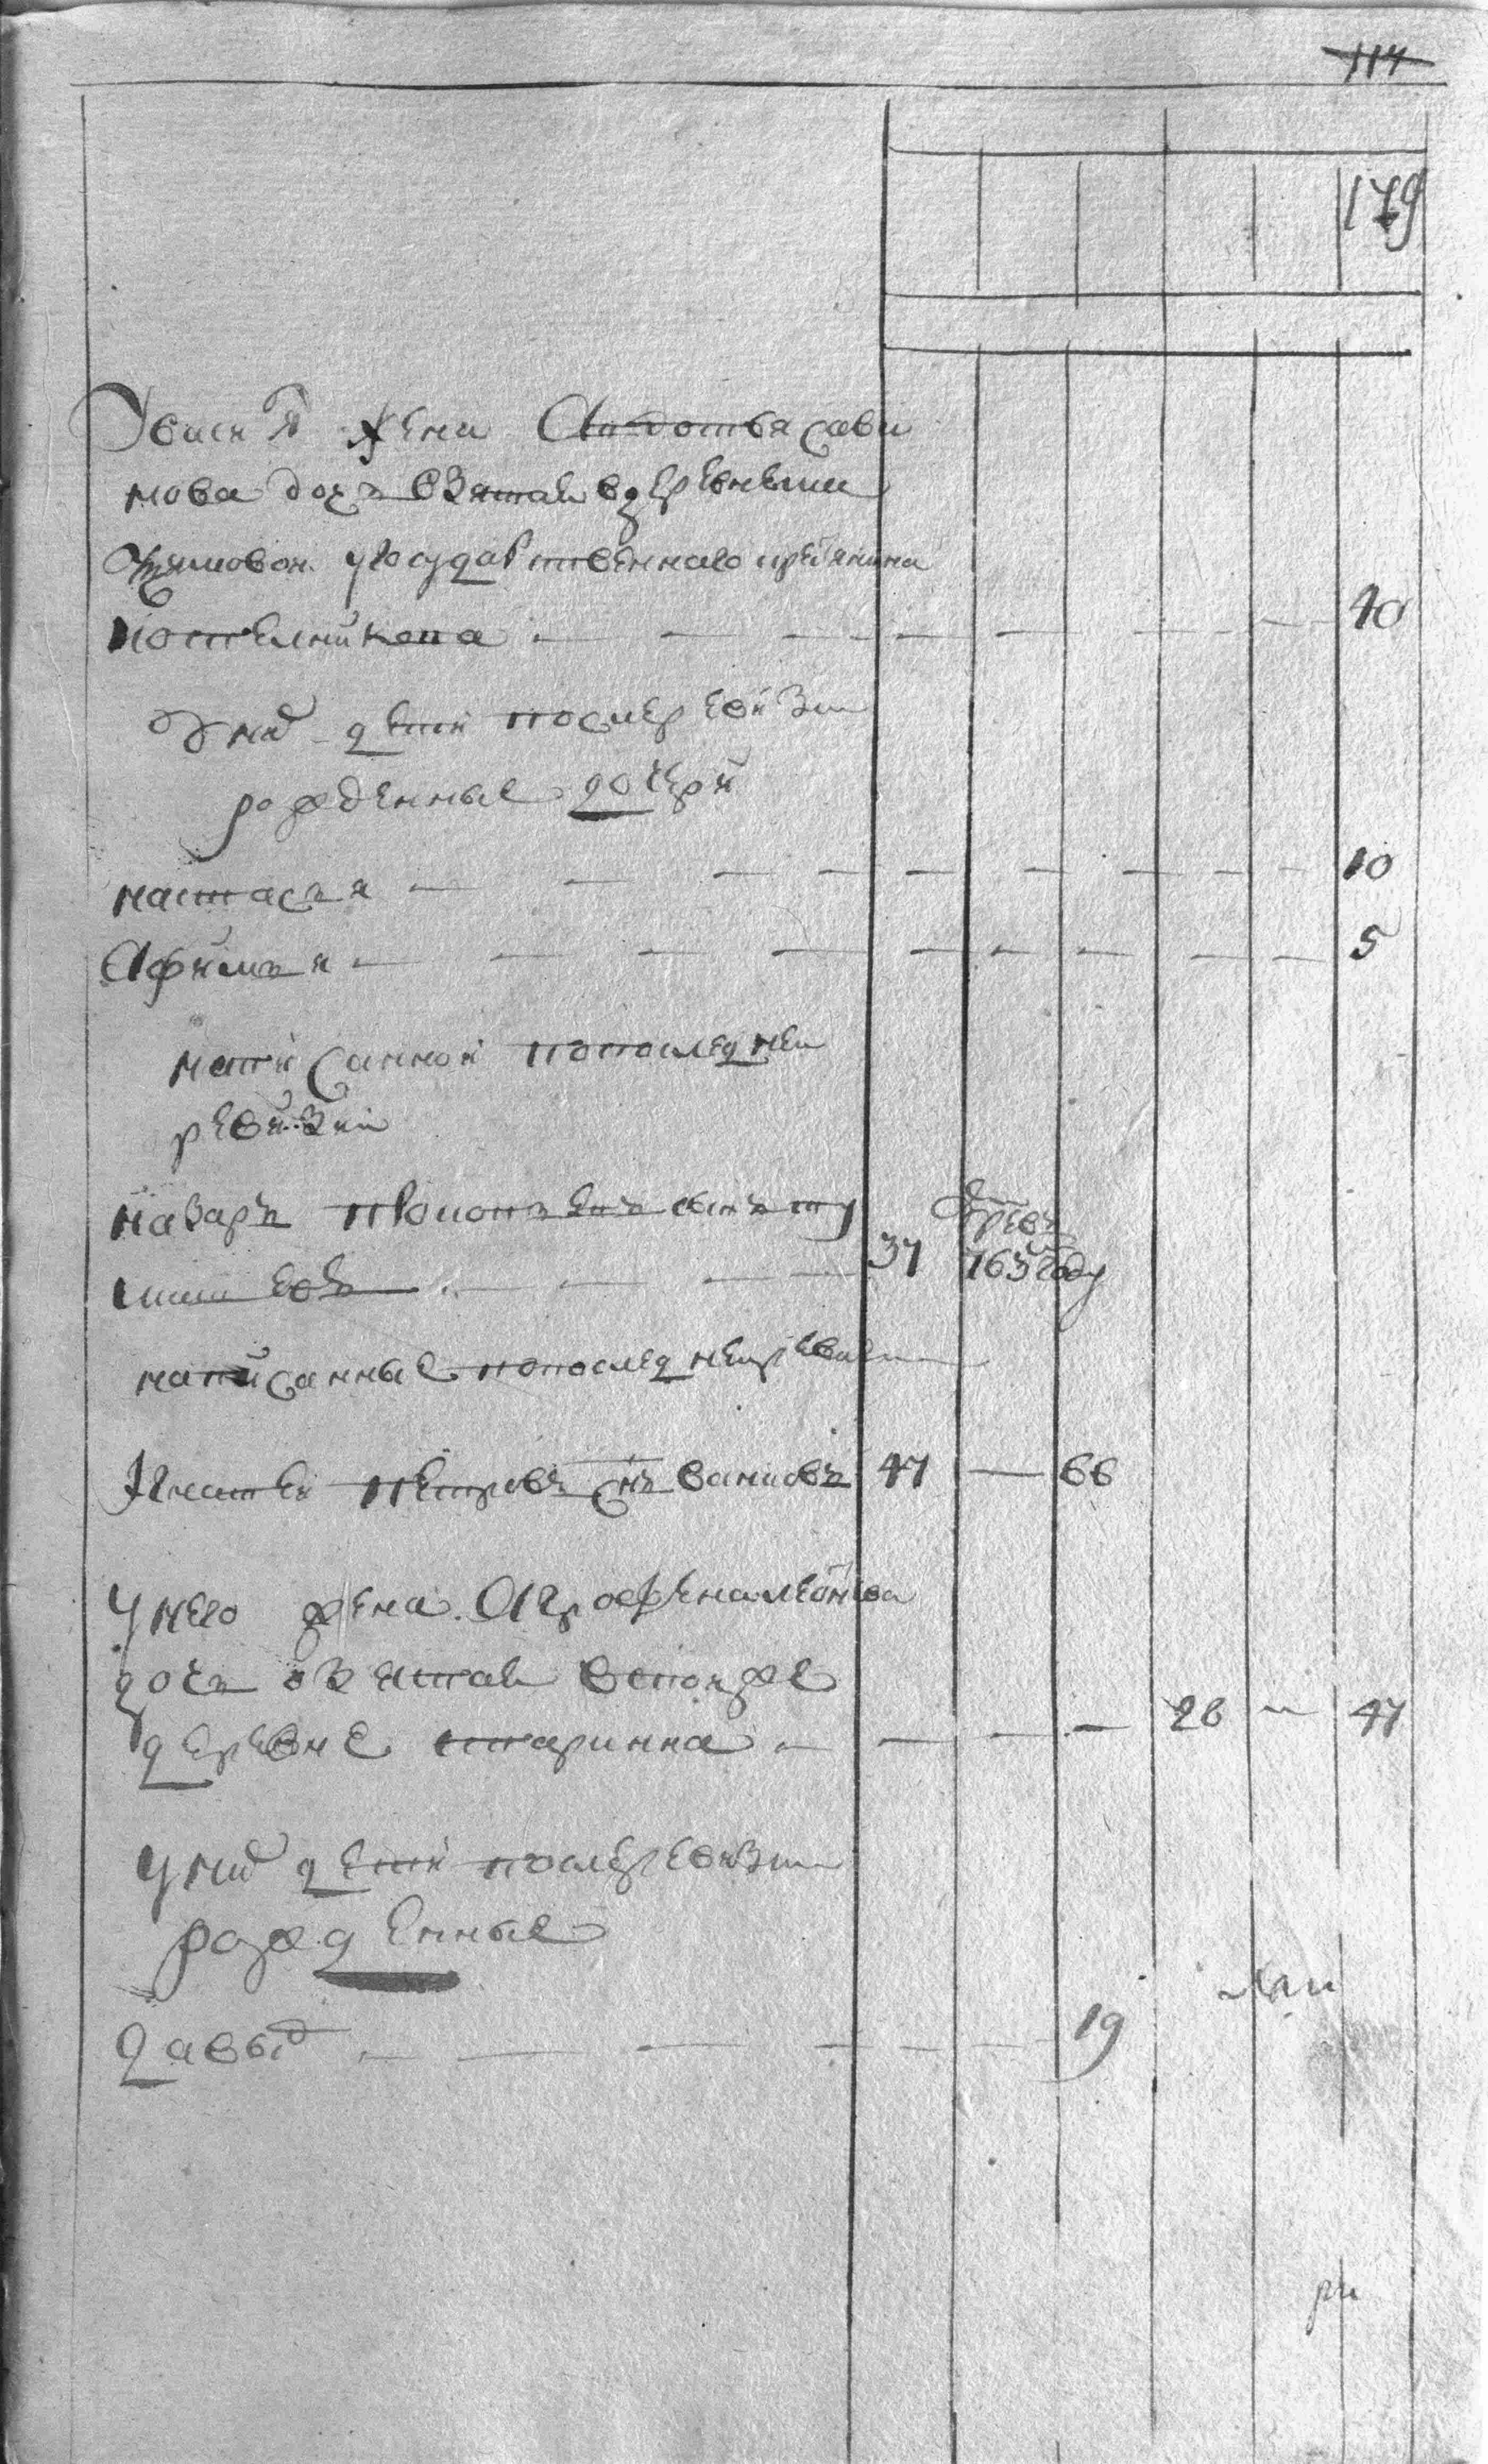 114
179
жена Авдотья Сави
нова дочь взятая в деревне
у государственнаго крестьянина
Котельникова 40
У них дети после ревизии
рожденные дочери
Настасья 10
Афимья 5
написанной по последней
ревизии
Назаръ Прокопьевъ сынъ
37 763 году
написанные по последней ревизии
Игнатей Петровъ сынъ 47 66
У него жена Аграфена Леонтьева
дочь взятая в той же
деревне старинна 28 47
У них дети после ревизии
рожденные
Давыд 19